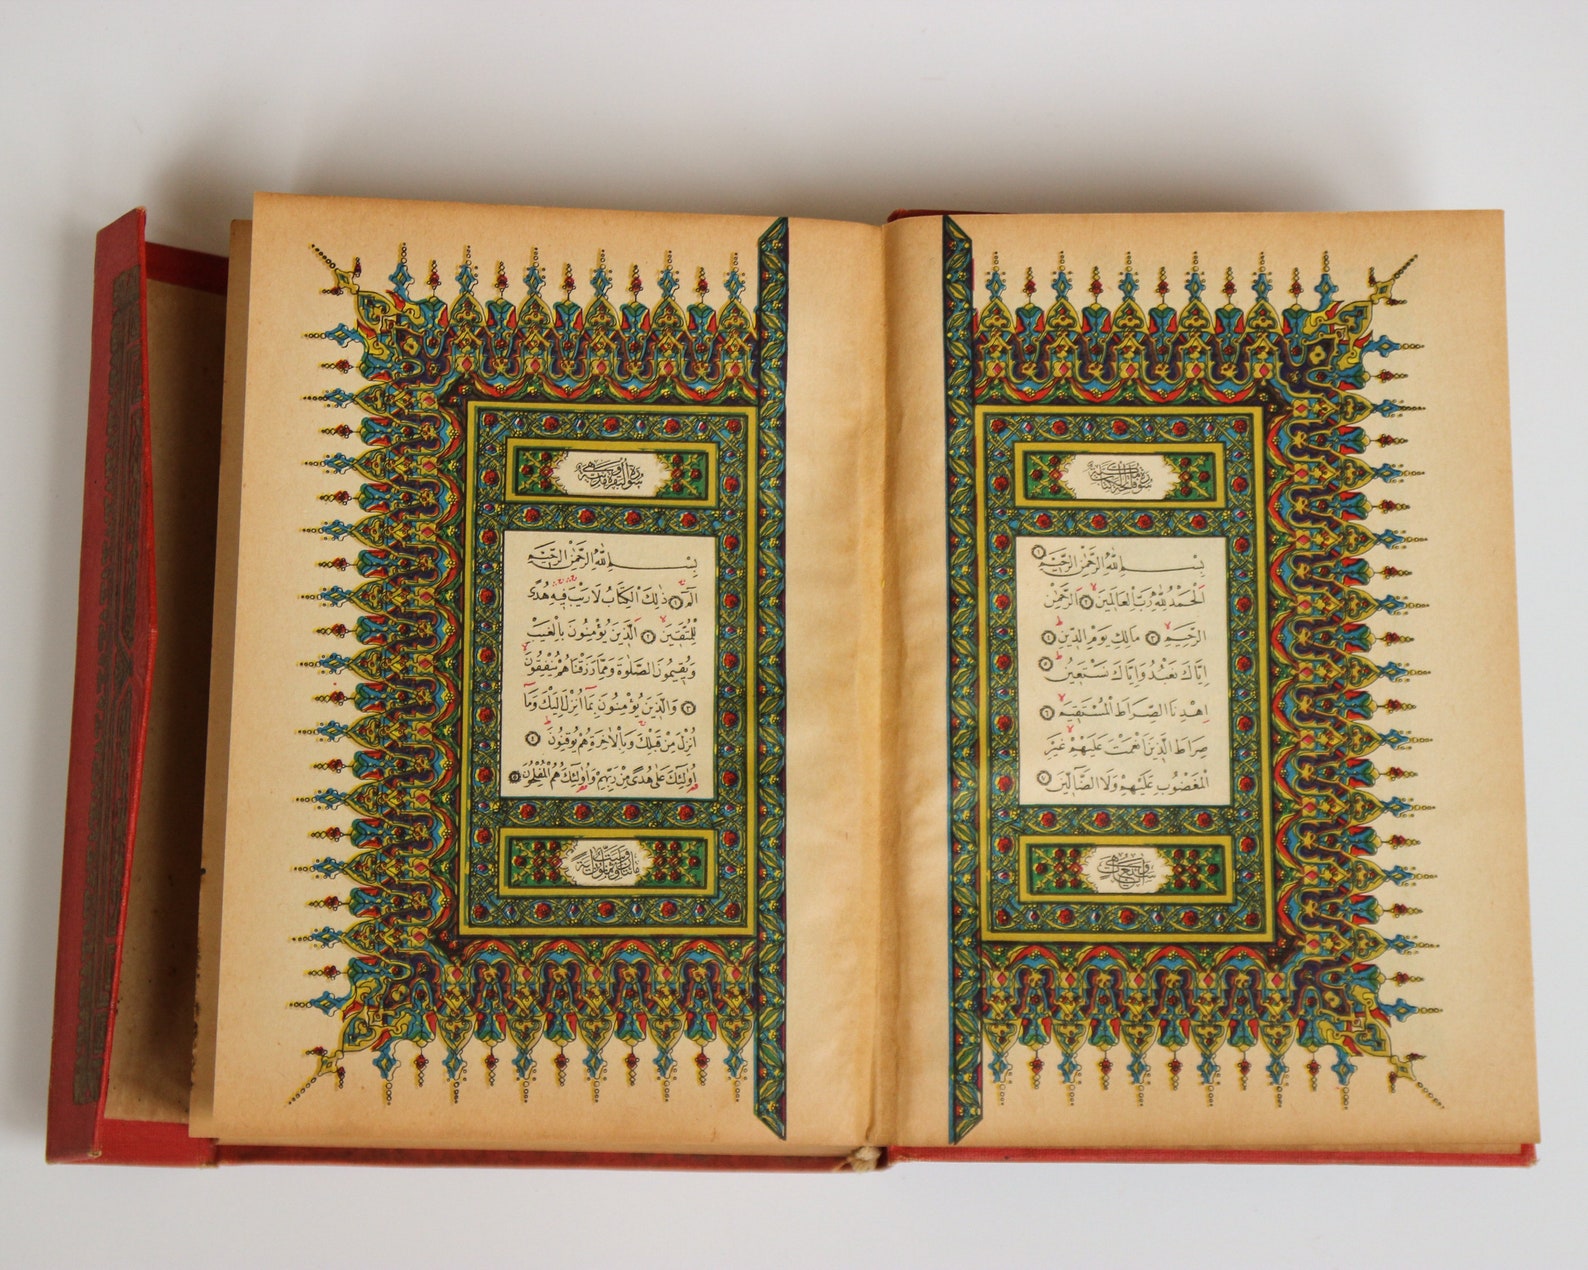 سورة فاتحة الكتاب
بِسْمِ اللّٰهِ الرَّحْمٰنِ الرَّحٖيمِ ١
اَلْحَمْدُ لِلّٰهِ رَبِّ الْعَالَمٖينَ ٢ اَلرَّحْمٰنِ
الرَّحٖيمِ ٣ مَالِكِ يَوْمِ الدّٖينِ ٤
اِيَّاكَ نَعْبُدُ وَاِيَّاكَ نَسْتَعٖينُ ٥
اِهْدِنَا الصِّرَاطَ الْمُسْتَقٖيمَ ٦
صِرَاطَ الَّذٖينَ اَنْعَمْتَ عَلَيْهِمْ غَيْرِ
الْمَغْضُوبِ عَلَيْهِمْ وَلَا الضَّٓالّٖينَ ٧
سورة البقرة وهي مدنية
بِسْمِ اللّٰهِ الرَّحْمٰنِ الرَّحٖيمِ
الٓمٓ ١ ذٰلِكَ الْكِتَابُ لَا رَيْبَ فٖيهِ هُدًى
لِلْمُتَّقٖينَ ٢ اَلَّذٖينَ يُؤْمِنُونَ بِالْغَيْبِ
وَيُقٖيمُونَ الصَّلٰوةَ وَمِمَّا رَزَقْنَاهُمْ يُنْفِقُونَ
٣ وَالَّذٖينَ يُؤْمِنُونَ بِمَٓا اُنْزِلَ اِلَيْكَ وَمَٓا
اُنْزِلَ مِنْ قَبْلِكَ وَبِالْاٰخِرَةِ هُمْ يُوقِنُونَ ٤
اُولٰٓئِكَ عَلٰى هُدًى مِنْ رَبِّهِمْ وَاُولٰٓئِكَ هُمُ الْمُفْلِحُونَ ٥